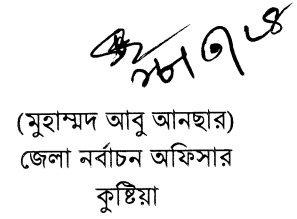 (মুহাম্মদ আবু আনছার)
জেলা নর্বাচন অফিসার
কুষ্টিয়া